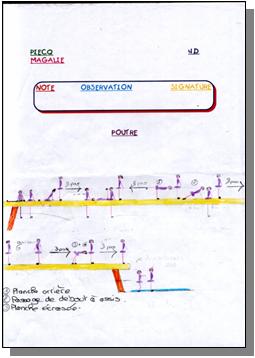 PIECQ N.D
MAGALIE
NOTE OBSERVATION SIGNATURE
POUTRE
3 pas 3 pas ① ② 3 pas
3 pas ①+③ 3 pas
① Planche arrière
② Passage de debout à assis.
③ Planche écrasée.